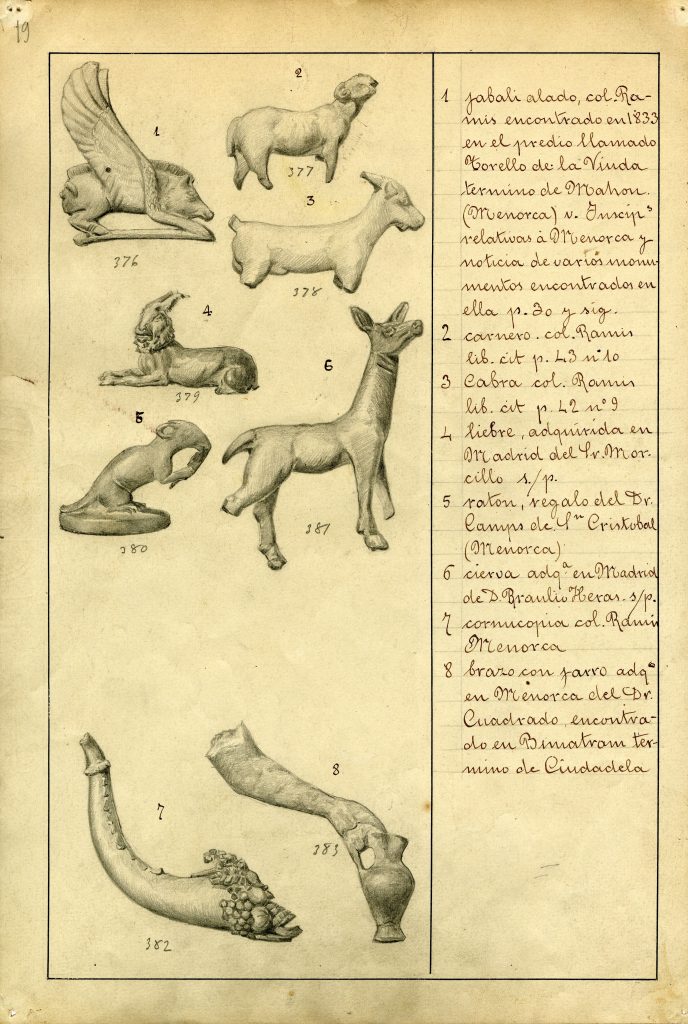 19
1
2
377
376
3
378
4
379
6
5
380
381
7
8
383
382
1 jabali alado, col. Ra-
mis encontrado en 1833
en el predio llamado
Torello de la Viuda
termino de Mahon.
(Menorca) v. Inscip.s
relativas à Menorca y
noticia de varios monu-
mentos encontrados en
ella p. 30 y sig.
2 carnero. col. Ramis
lib. cit p. 43 nº 10
3 Cabra col. Ramis
lib. cit p. 42 nº 9
4 liebre, adquirida en
Madrid del Sr. Mor-
cillo s./p.
5 raton, regalo del Dr.
Camps de Sn Cristobal
(Menorca)
6 cierva adq.ª en Madrid
de D. Braulio Heras. s/p.
7 cornucopia col. Ramis
Menorca
8 brazo con jarro adq.º
en Menorca del Dr.
Cuadrado, encontra-
do en Binatram ter-
mino de Ciudadela